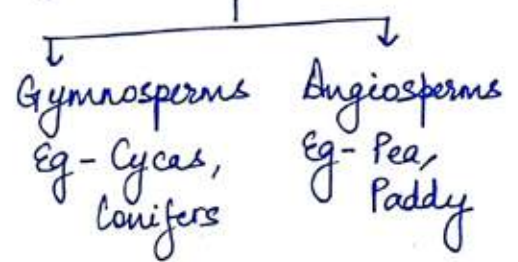 Gymnosperms
Eg - Cycas,
Conifers
Angiosperms
Eg - Pea,
Paddy